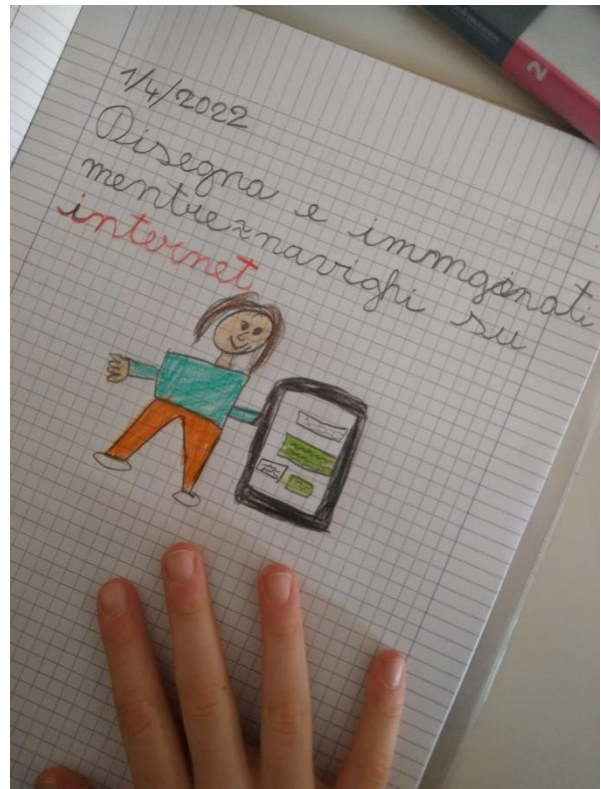 1/4/2022
Disegna e immmgginati
mentre navighi su
internet
2